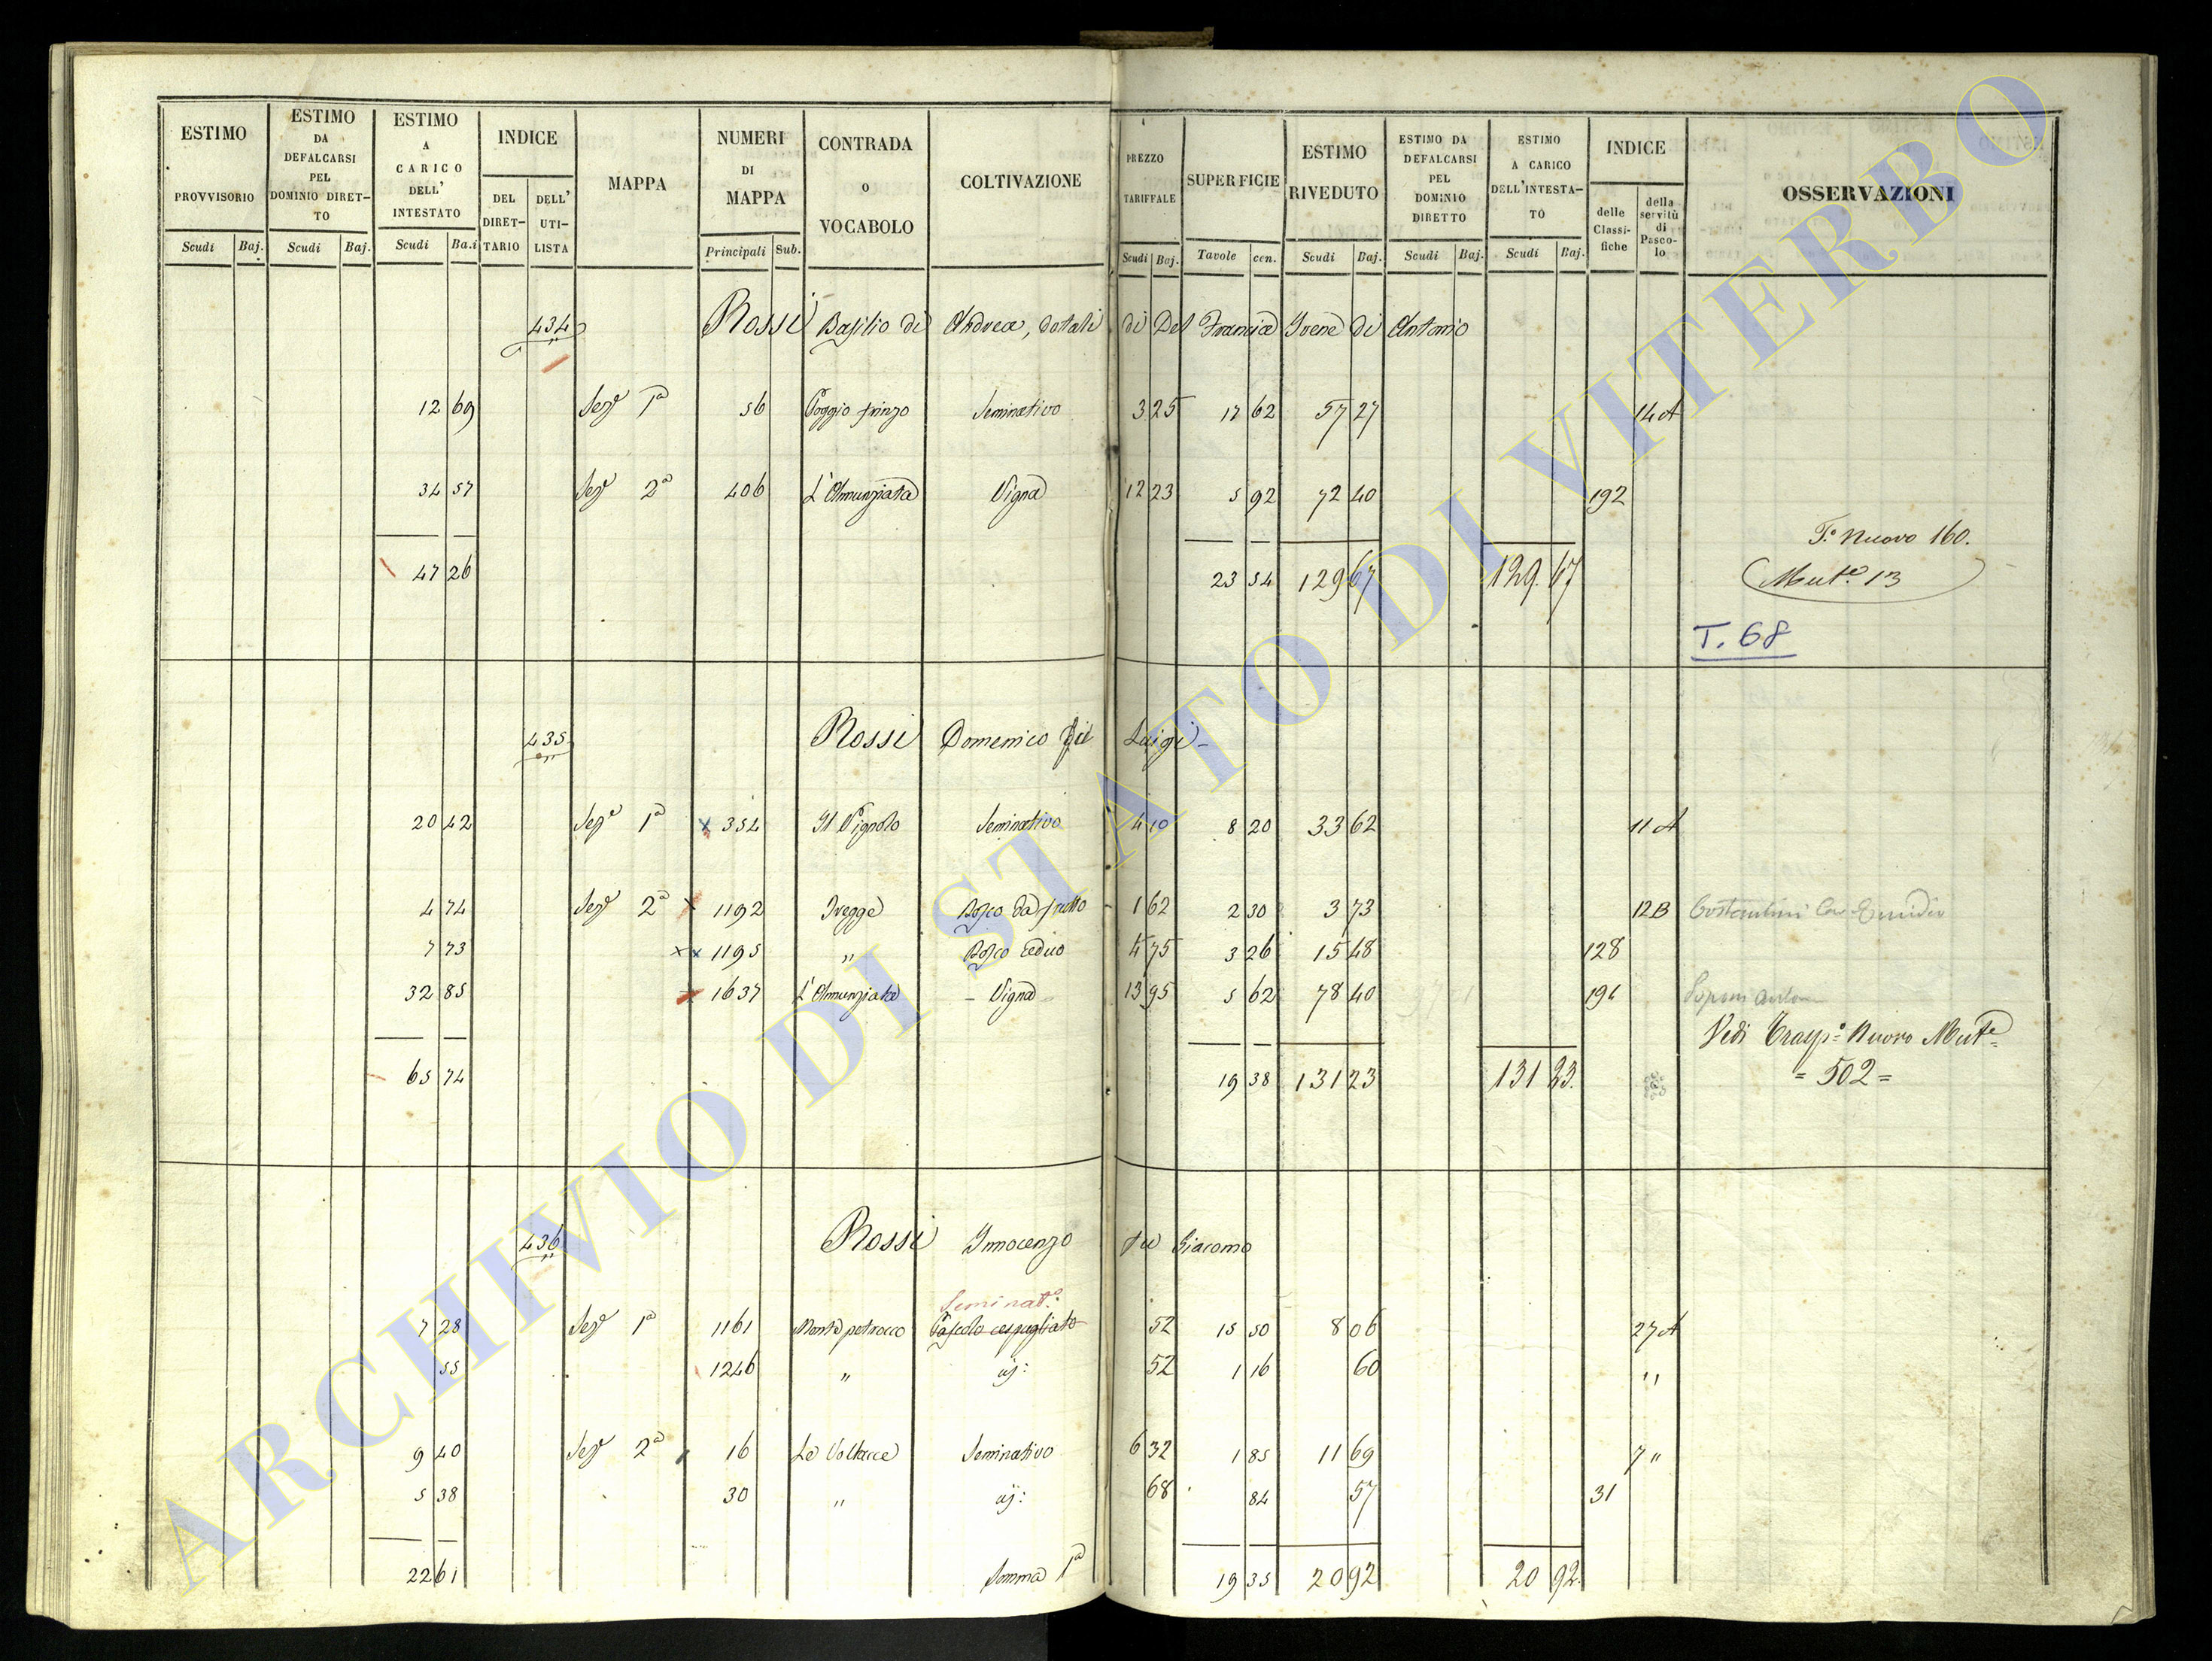 ESTIMO PROVVISORIO Scudi Baj. | ESTIMO DA DEFALCARSI PEL DOMINIO DIRET-TO Scudi Baj. | ESTIMO A CARICO DELL' INTESTATO Scudi Ba.i | INDICE DEL DIRET-TARIO DELL' UTI-LISTA | MAPPA | NUMERI DI MAPPA Principali Sub. | CONTRADA O VOCABOLO | COLTIVAZIONE | PREZZO TARIFFALE Scudi Baj. | SUPERFICIE Tavole cen. | ESTIMO RIVEDUTO Scudi Baj. | ESTIMO DA DEFALCARSI PEL DOMINIO DIRETTO Scudi Baj. | ESTIMO A CARICO DELL'INTESTA-TO Scudi Baj. | INDICE delle Classi-fiche della servitù di Pasco-lo | OSSERVAZIONI
434 Rossi Basilio di Andrea, dotali di Del Francia Irene di Antonio
12 69 Sezᵉ 1ª 56 Poggio frinzo Seminativo 3 25 17 62 57 27 14 A
34 57 Sezᵉ 2ª 406 L'Annunziata Vigna 12 23 5 92 72 40 192
T.º Nuovo 160.
47 26 23 54 129 67 129. 67 Mutᵉ 13
T. 68
435 Rossi Domenico fu Luigi
20 42 Sezᵉ 1ª x 354 Il Vignolo Seminativo 4 10 8 20 33 62 11 A
4 74 Sezᵉ 2ª x 1192 Iregge Bosco da frutto 1 62 2 30 3 73 12 B Costantini Emidio
7 73 xx 1195 " Bosco ceduo 4 75 3 26 15 48 128
32 85 1637 L'Annunziata Vigna 13 95 5 62 78 40 196
Vedi Trasp.º Nuovo Mutᵉ
65 74 19 38 131 23 131 23. = 502 =
436 Rossi Innocenzo fu Giacomo
Seminatº:
7 28 Sezᵉ 1ª 1161 Monte petrocco Pascolo cespugliato 52 15 50 8 06 27 A
55 1246 " aj: 52 1 16 60 "
9 40 Sezᵉ 2ª 16 Le Voltacce Seminativo 6 32 1 85 11 69 7 "
5 38 30 " aj: 68 84 57 31
22 61 Somma 1ª 19 35 20 92 20 92.
ARCHIVIO DI STATO DI VITERBO